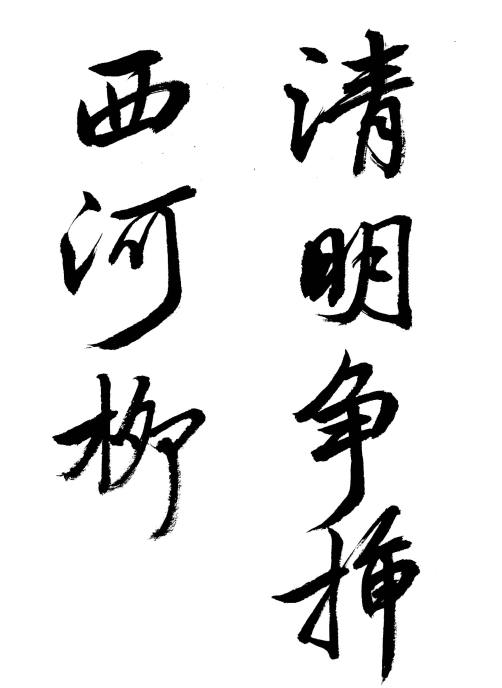 清明争插
西河柳